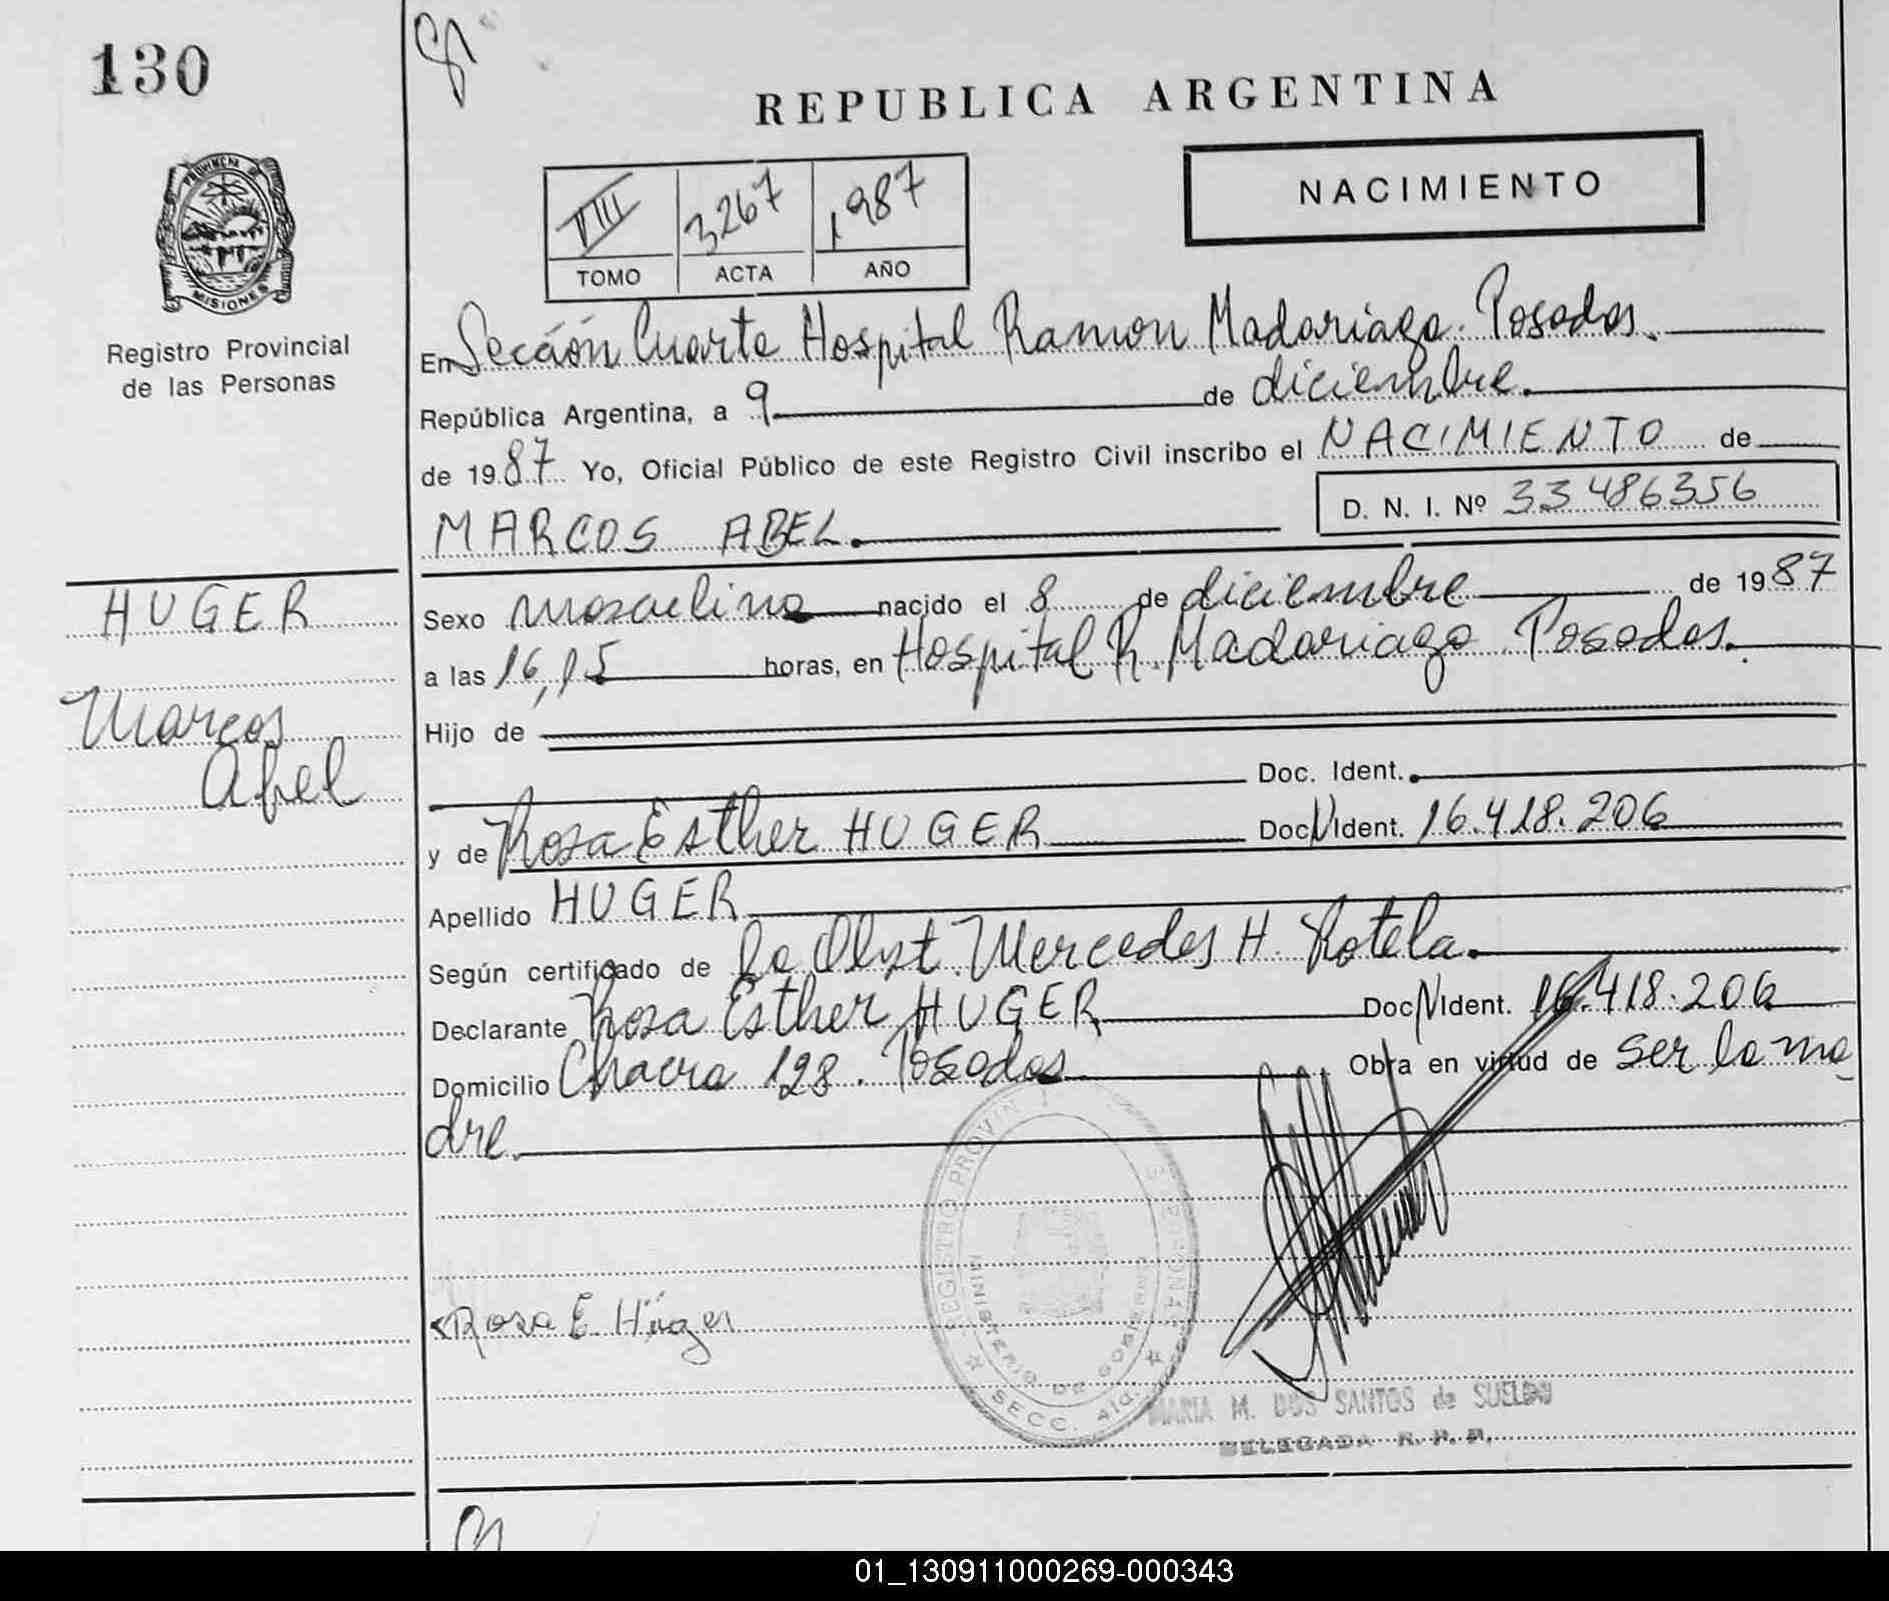 130
REPUBLICA ARGENTINA
NACIMIENTO
VIII 3267 1987
TOMO ACTA AÑO
PROVINCIA DE
MISIONES
Registro Provincial
de las Personas
En Sección Cuarta Hospital Ramon Madariaga. Posadas.
República Argentina, a 9 de diciembre.
de 1987 Yo, Oficial Público de este Registro Civil inscribo el NACIMIENTO de
D. N. I. Nº 33486356
MARCOS ABEL.
HUGER
Marcos
Abel
Sexo masculino nacido el 8 de diciembre de 1987
a las 16,15 horas, en Hospital R. Madariaga. Posadas.
Hijo de
Doc. Ident.
y de Rosa Esther HUGER Doc N Ident. 16.418.206
Apellido HUGER
Según certificado de la Obst. Mercedes H. Rotela.
Declarante Rosa Esther HUGER Doc N Ident. 16.418.206
Domicilio Chacra 128. Posadas Obra en virtud de ser la ma
dre.
REGISTRO PROVIN
MINISTERIO DE GOBIERNO
SECC. 4ta.
Rosa E. Hüger
MARIA M. DOS SANTOS de SUELDO
DELEGADA R. P. P.
01_130911000269-000343